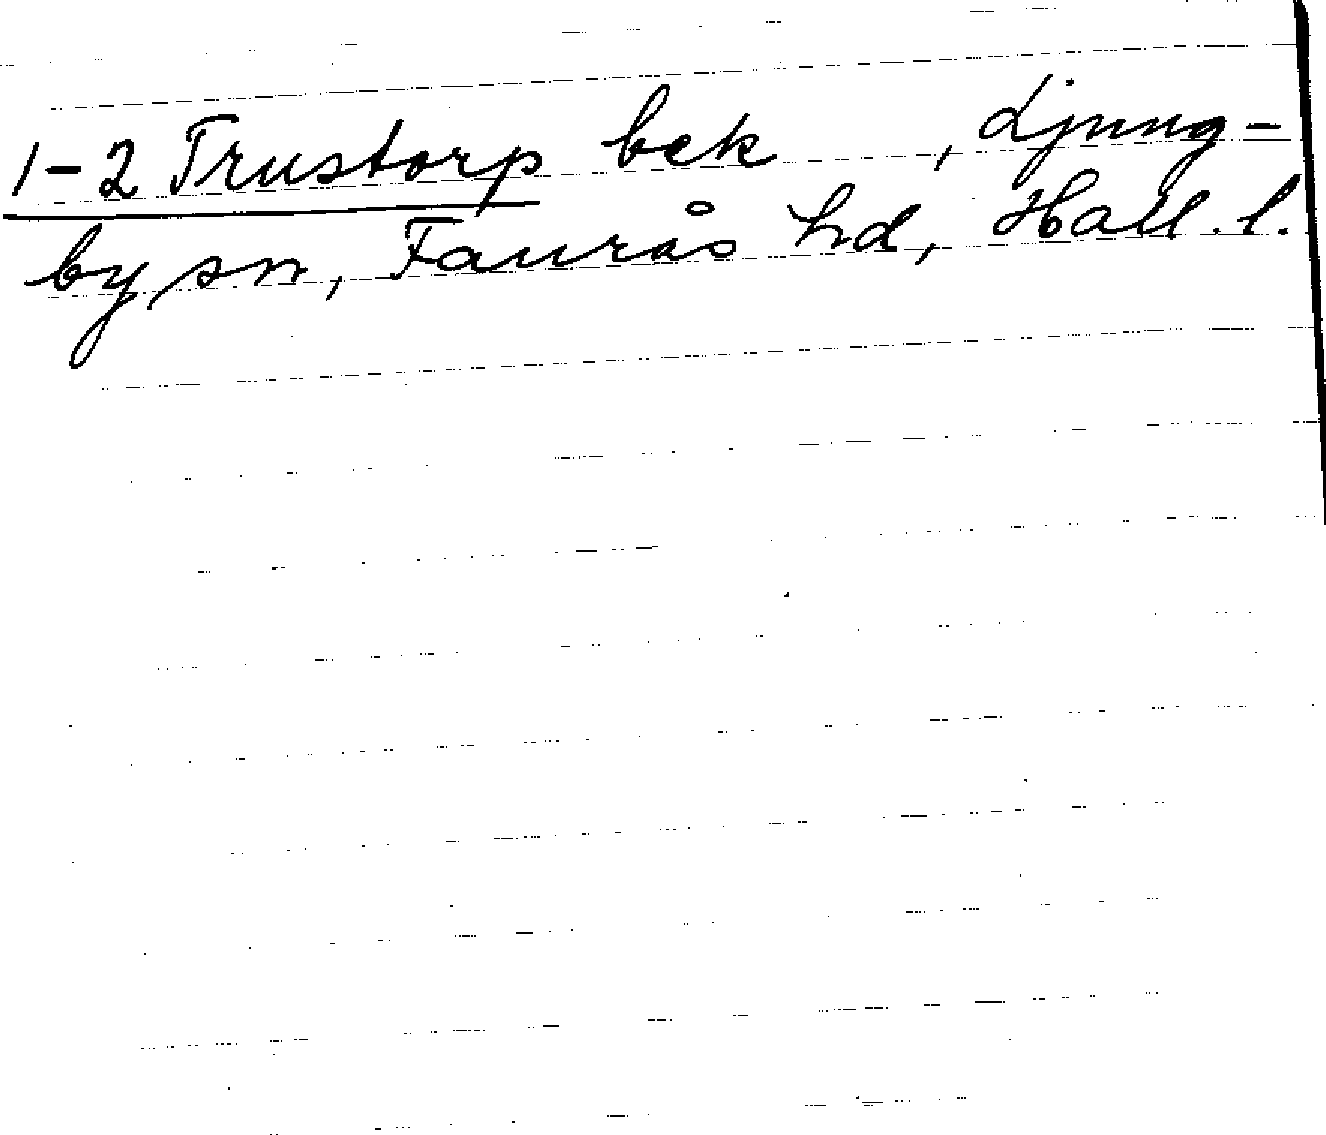 1-2 Trustorp bek , Ljung-
by sn, Faurås hd, Hall. l.